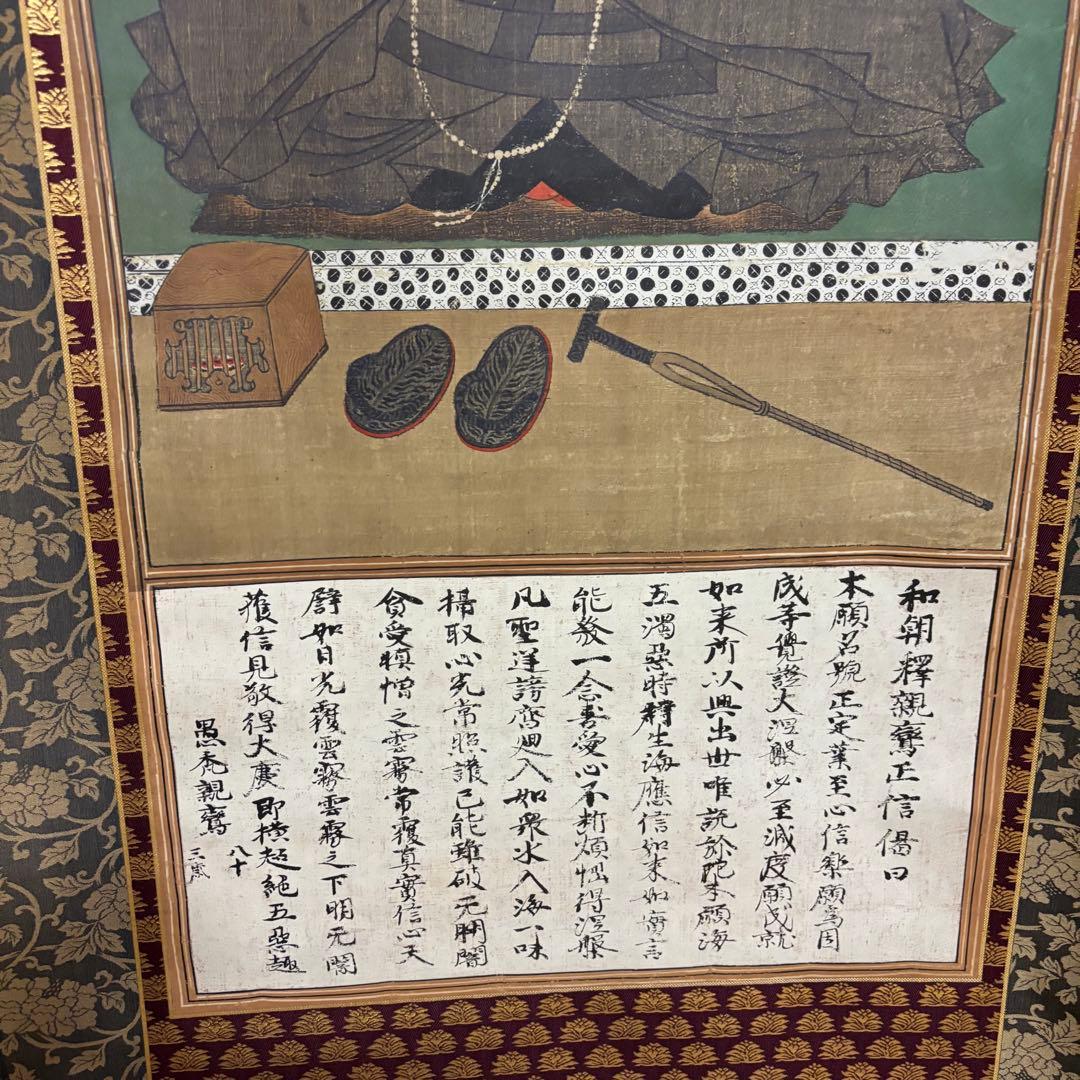 和朝釋親鸞正信偈曰
本願名號正定業至心信樂願為因
成等覺證大涅槃必至滅度願成就
如来所以興出世唯説弥陀本願海
五濁惡時群生海應信如来如實言
能發一念喜愛心不断煩惱得涅槃
凡聖逆謗齊廻入如衆水入海一味
攝取心光常照護已能雖破无明闇
貪愛瞋憎之雲霧常覆真實信心天
譬如日光覆雲霧雲霧之下明无闇
獲信見敬得大慶即横超絶五惡趣
愚禿親鸞 八十三歳